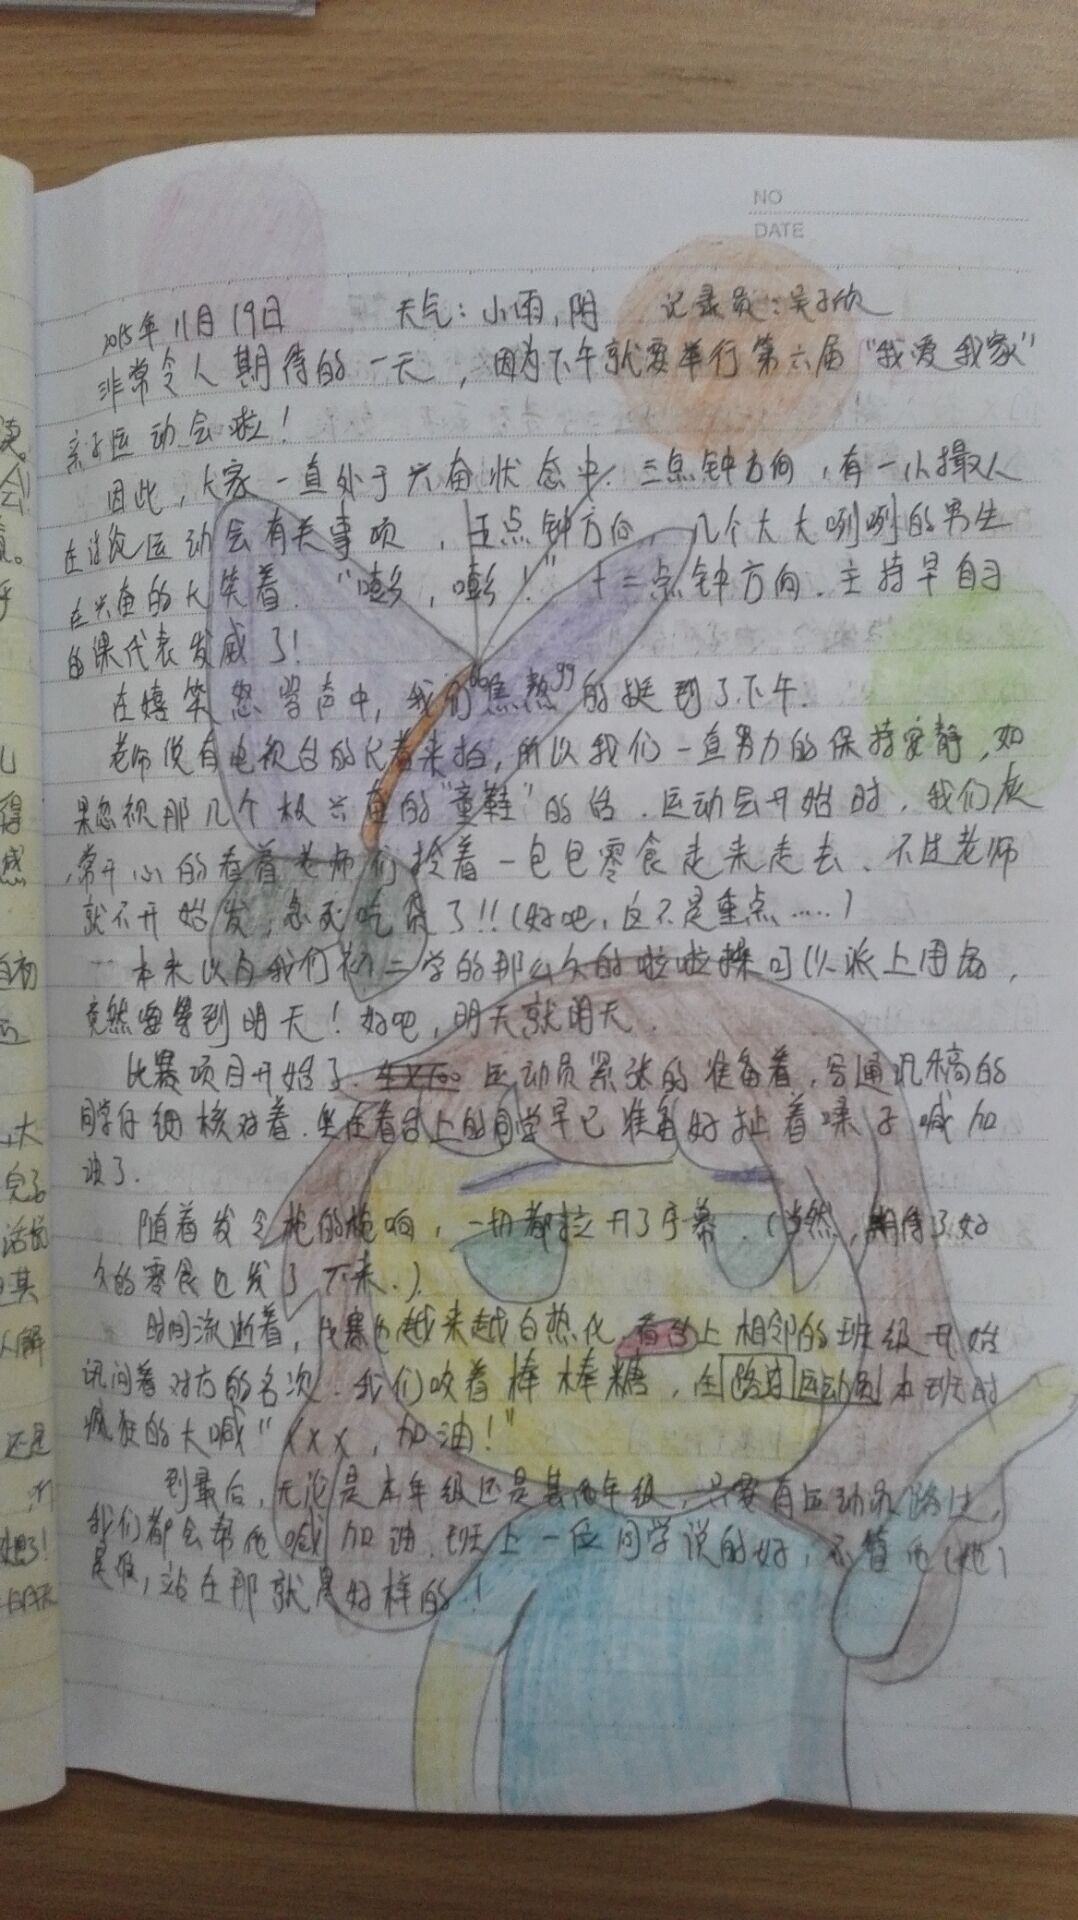 NO
DATE
2015年11月19日 天气：小雨，阴 记录员：吴子欣
非常令人期待的一天，因为下午就要举行第六届“我爱我家”
亲子运动会啦！
因此，大家一直处于兴奋状态中.三点钟方向，有一小撮人
在谈论运动会有关事项，五点钟方向，几个大大咧咧的男生
在兴奋的大笑着.“嘭，嘭！”十二点钟方向.主持早自习
的课代表发威了！
在嬉笑怒骂声中，我们“焦熬”的挺到了下午.
老师说有电视台的记者来拍，所以我们一直努力的保持安静，如
果忽视那几个极兴奋的“童鞋”的话.运动会开始时，我们
常开心的看着老师们拎着一包包零食走来走去、不过老师
就不开始发，急死吃货了!!（好吧，这不是重点……）
本来以为我们初二学的那么久的啦啦操可以派上用场，
竟然要等到明天！好吧，明天就明天.
比赛项目开始了.运动员紧张的准备着，写通讯稿的
同学仔细核对着.坐在看台上的同学早已准备好扯着嗓子喊加
油了.
随着发令枪的枪响，一切都拉开了序幕.（当然，期待了好
久的零食也发了下来.）
时间流逝着，比赛也越来越白热化.看台上相邻的班级开始
讯问着对方的名次.我们咬着棒棒糖，在路过运动员本班时
疯狂的大喊“×××，加油！”
到最后，无论是本年级还是其他年级，只要有运动员路过，
我们都会帮他喊加油.班上一位同学说的好，不管他（她）
是谁，站在那就是好样的！